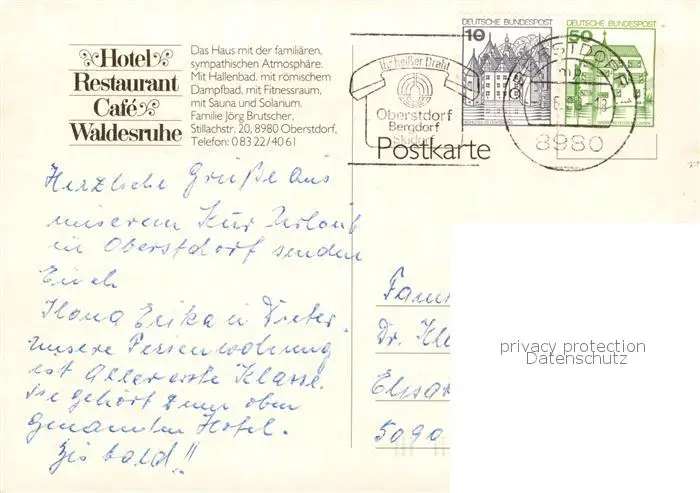 Hotel
Restaurant
Café
Waldesruhe
Das Haus mit der familiären,
sympathischen Atmosphäre.
Mit Hallenbad, mit römischem
Dampfbad, mit Fitnessraum,
mit Sauna und Solarium.
Familie Jörg Brutscher,
Stillachstr. 20, 8980 Oberstdorf,
Telefon: 0 83 22/40 61
Ihr heißer Draht
Oberstdorf
Bergdorf
Skidorf
DEUTSCHE BUNDESPOST
10
DEUTSCHE BUNDESPOST
50
OBERSTDORF 1
8980
Postkarte
Herzliche Grüße aus
unserem Kur Urlaub
in Oberstdorf senden
Euch
Ilona Erika u Dieter.
unsere Ferienwohnung
ist Allererste Klasse.
sie gehört zum oben
genannten Hotel.
Bis bald!!
Fam
Dr. Kl
Elisa
5090
privacy protection
Datenschutz